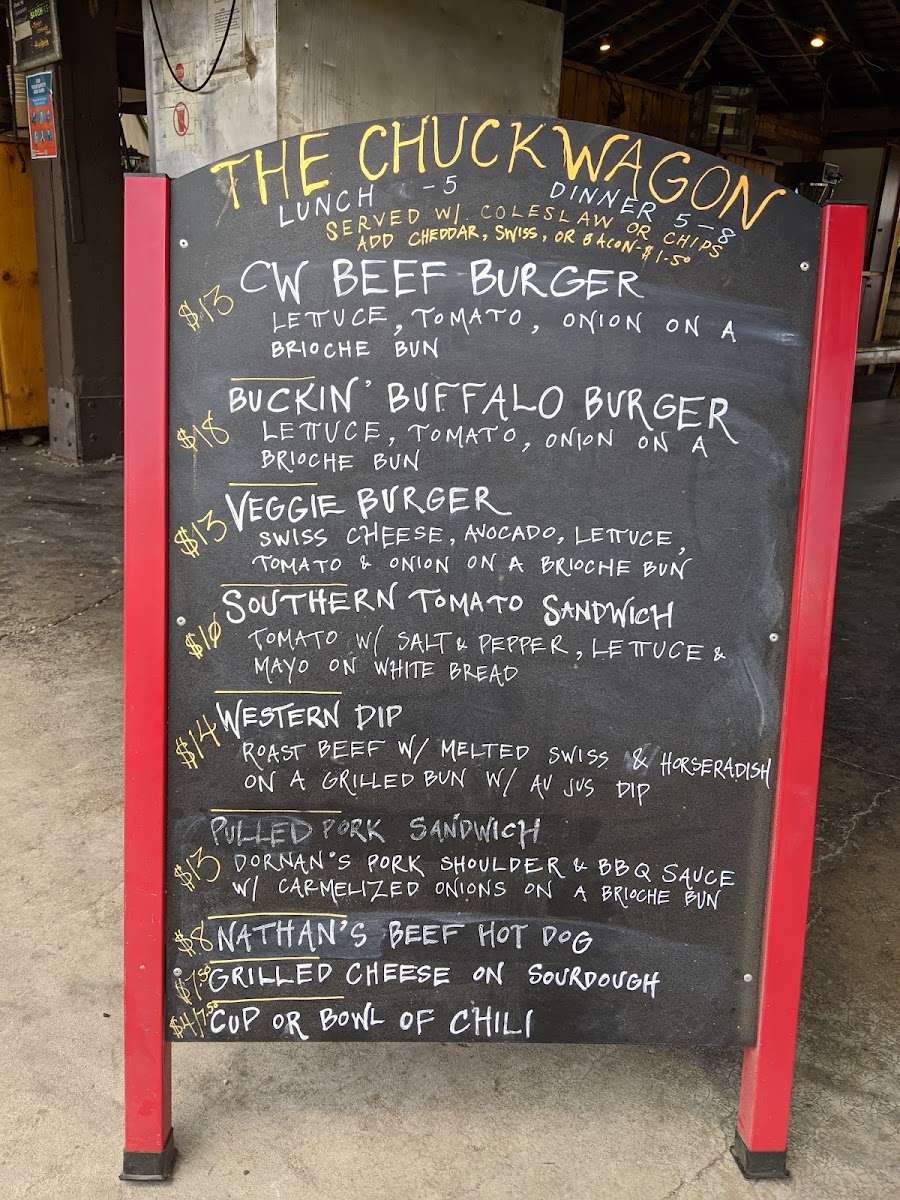 THE CHUCKWAGON
LUNCH - 5 DINNER 5-8
SERVED W/ COLESLAW OR CHIPS
ADD CHEDDAR, SWISS, OR BACON-$1.50
$13 CW BEEF BURGER
LETTUCE, TOMATO, ONION ON A
BRIOCHE BUN
$18 BUCKIN' BUFFALO BURGER
LETTUCE, TOMATO, ONION ON A
BRIOCHE BUN
$13 VEGGIE BURGER
SWISS CHEESE, AVOCADO, LETTUCE,
TOMATO & ONION ON A BRIOCHE BUN
$10 SOUTHERN TOMATO SANDWICH
TOMATO W/ SALT & PEPPER, LETTUCE &
MAYO ON WHITE BREAD
$14 WESTERN DIP
ROAST BEEF W/ MELTED SWISS & HORSERADISH
ON A GRILLED BUN W/ AU JUS DIP
PULLED PORK SANDWICH
$13 DORNAN'S PORK SHOULDER & BBQ SAUCE
W/ CARMELIZED ONIONS ON A BRIOCHE BUN
$8 NATHAN'S BEEF HOT DOG
$7.50 GRILLED CHEESE ON SOURDOUGH
$4/7.50 CUP OR BOWL OF CHILI